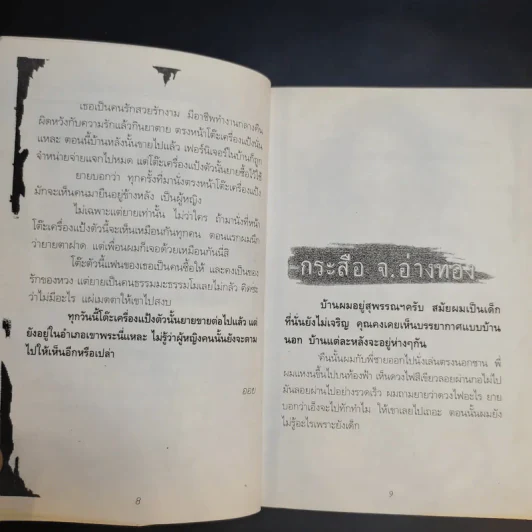 เธอเป็นคนรักสวยรักงาม มีอาชีพทำงานกลางคืน
ผิดหวังกับความรักแล้วกินยาตาย ตรงหน้าโต๊ะเครื่องแป้งนั่น
แหละ ตอนนี้บ้านหลังนั้นขายไปแล้ว เฟอร์นิเจอร์ในบ้านก็ถูก
จำหน่ายจ่ายแจกไปหมด แต่โต๊ะเครื่องแป้งตัวนั้นยายซื้อไว้ใช้
ยายบอกว่า ทุกครั้งที่มานั่งตรงหน้าโต๊ะเครื่องแป้ง
มักจะเห็นคนมายืนอยู่ข้างหลัง เป็นผู้หญิง
ไม่เฉพาะแต่ยายเท่านั้น ไม่ว่าใคร ถ้ามานั่งที่หน้า
โต๊ะเครื่องแป้งตัวนี้จะเห็นเหมือนกันทุกคน ตอนแรกผมนึก
ว่ายายตาฝาด แต่เพื่อนผมก็เจอด้วยเหมือนกันนี่สิ
โต๊ะตัวนี้แฟนของเธอเป็นคนซื้อให้ และคงเป็นของ
รักของหวง แต่ยายเป็นคนธรรมมะธรรมโมเลยไม่กลัว คิดซะ
ว่าไม่มีอะไร แผ่เมตตาให้เขาไปสงบ
ทุกวันนี้โต๊ะเครื่องแป้งตัวนั้นยายขายต่อไปแล้ว แต่
ยังอยู่ในอำเภอเขาพระนี่แหละ ไม่รู้ว่าผู้หญิงคนนั้นยังจะตาม
ไปให้เห็นอีกหรือเปล่า
ออย
8
กระสือ จ.อ่างทอง
บ้านผมอยู่สุพรรณฯครับ สมัยผมเป็นเด็ก
ที่นั่นยังไม่เจริญ คุณคงเคยเห็นบรรยากาศแบบบ้าน
นอก บ้านแต่ละหลังจะอยู่ห่างๆกัน
คืนนั้นผมกับพี่ชายออกไปนั่งเล่นตรงนอกชาน พี่
ผมแหงนขึ้นไปบนท้องฟ้า เห็นดวงไฟสีเขียวลอยผ่านกอไม้ไป
มันลอยผ่านไปอย่างรวดเร็ว ผมถามยายว่าดวงไฟอะไร ยาย
บอกว่าเอ็งจะไปทักทำไม ให้เขาเลยไปเถอะ ตอนนั้นผมยัง
ไม่รู้อะไรเพราะยังเด็ก
9